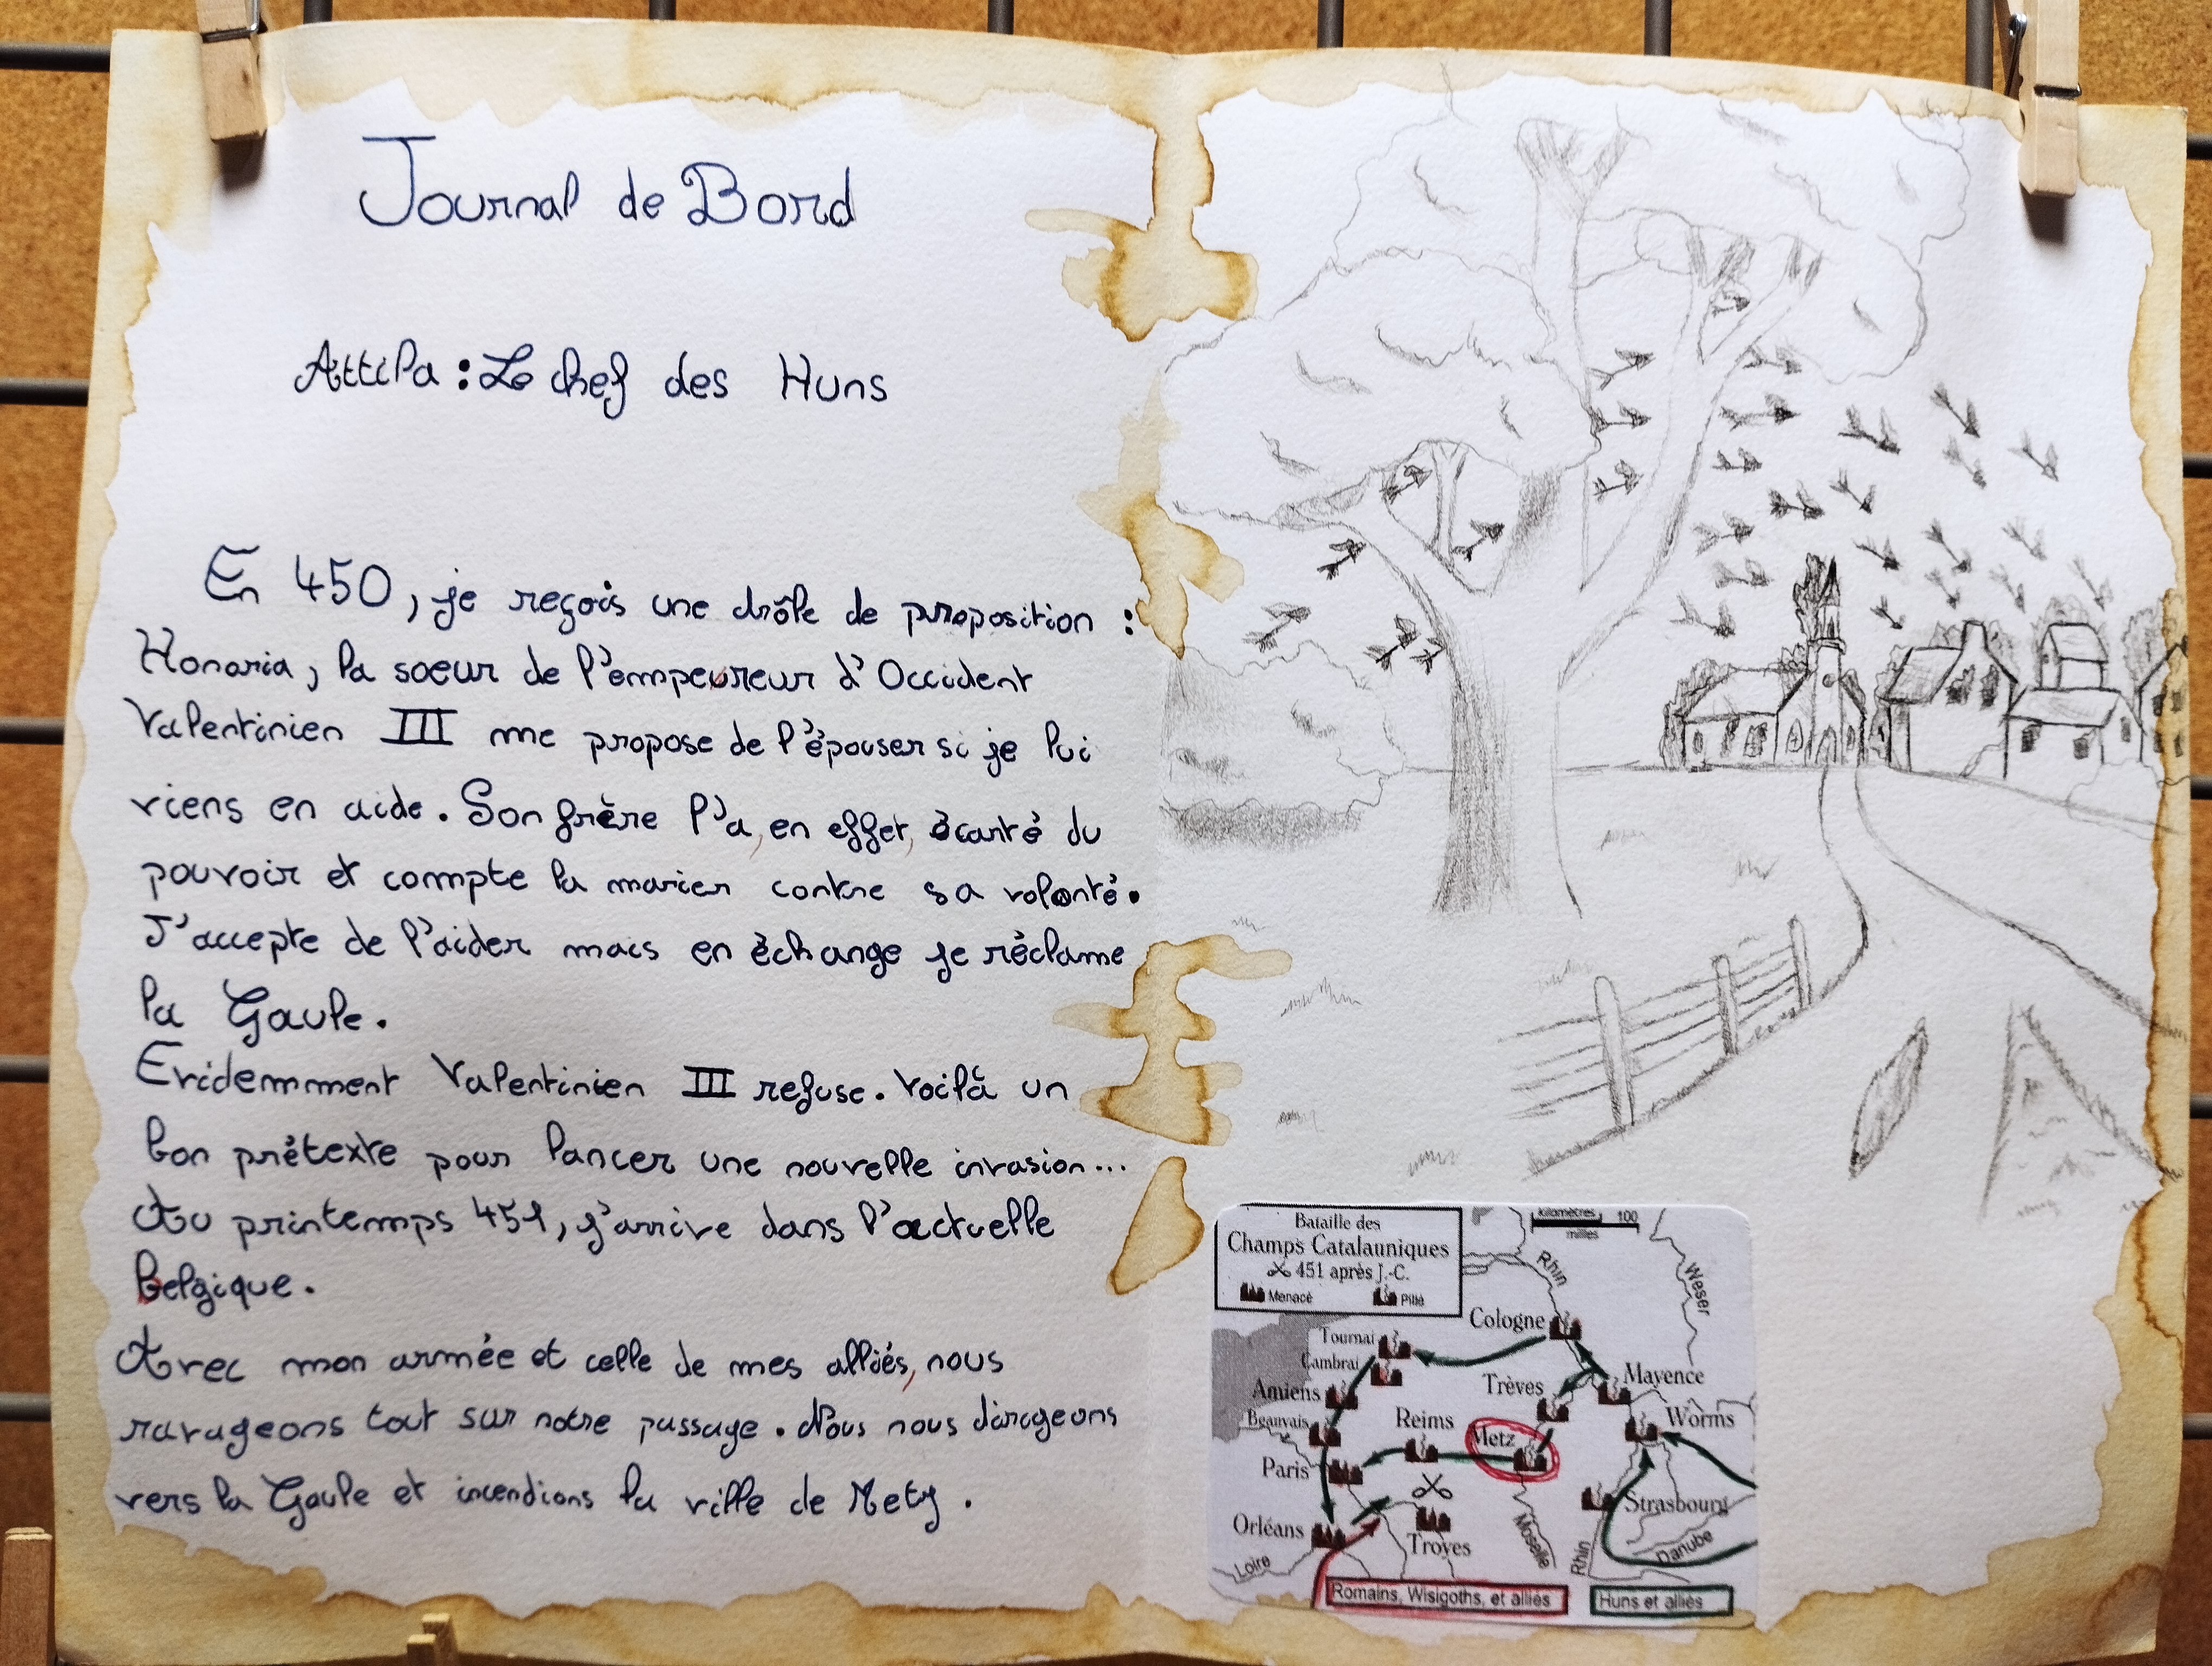 Journal de Bord
Attila : Le chef des Huns
En 450, je reçois une drôle de proposition :
Honoria, la sœur de l'empeureur d'Occident
Valentinien III me propose de l'épouser si je lui
viens en aide. Son frère l'a, en effet, écarté du
pouvoir et compte la marier contre sa volonté.
J'accepte de l'aider mais en échange je réclame
la Gaule.
Evidemment Valentinien III refuse. Voilà un
bon prétexte pour lancer une nouvelle invasion...
Au printemps 451, j'arrive dans l'actuelle
Belgique.
Avec mon armée et celle de mes alliés, nous
ravageons tout sur notre passage. Nous nous dirageons
vers la Gaule et incendions la ville de Metz.
Bataille des
Champs Catalauniques
451 après J.-C.
Menacé Pillé
kilomètres 100
milles
Rhin
Weser
Cologne
Tournai
Cambrai
Mayence
Amiens
Trèves
Beauvais
Reims
Metz
Worms
Paris
Strasbourg
Orléans
Troyes
Moselle
Rhin
Danube
Loire
Romains, Wisigoths, et alliés
Huns et alliés